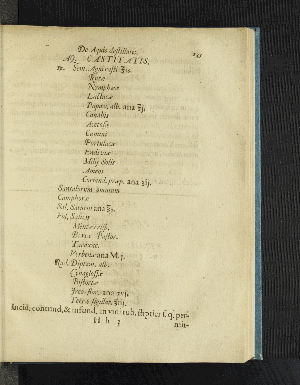 De Aquis destillatis.
AQ. CASTITATIS.
℞. Sem. Agni casti ℥iſ.
Rutæ
Nymphææ
Lactucæ
Papav. alb. ana ℥j.
Canabis
Acetosæ
Cumini
Portulacæ
Endiviæ
Milij Solis
Ameos
Coriand. præp. ana ʒij.
Santalorum omnium
Camphoræ
Sal. Saturni ana
Fol. Salicis
Menthæ crisp.
Bursæ Pastor.
Verbenæ ana M. j.
Rad. Diptam. alb.
Cynoglossæ
Bistortæ
Ireos flor. ana
Terræ sigillat. ʒiij.
Incid, contund, & infund, in vini rub. stiptici s. q. per-
H h 3
mit-